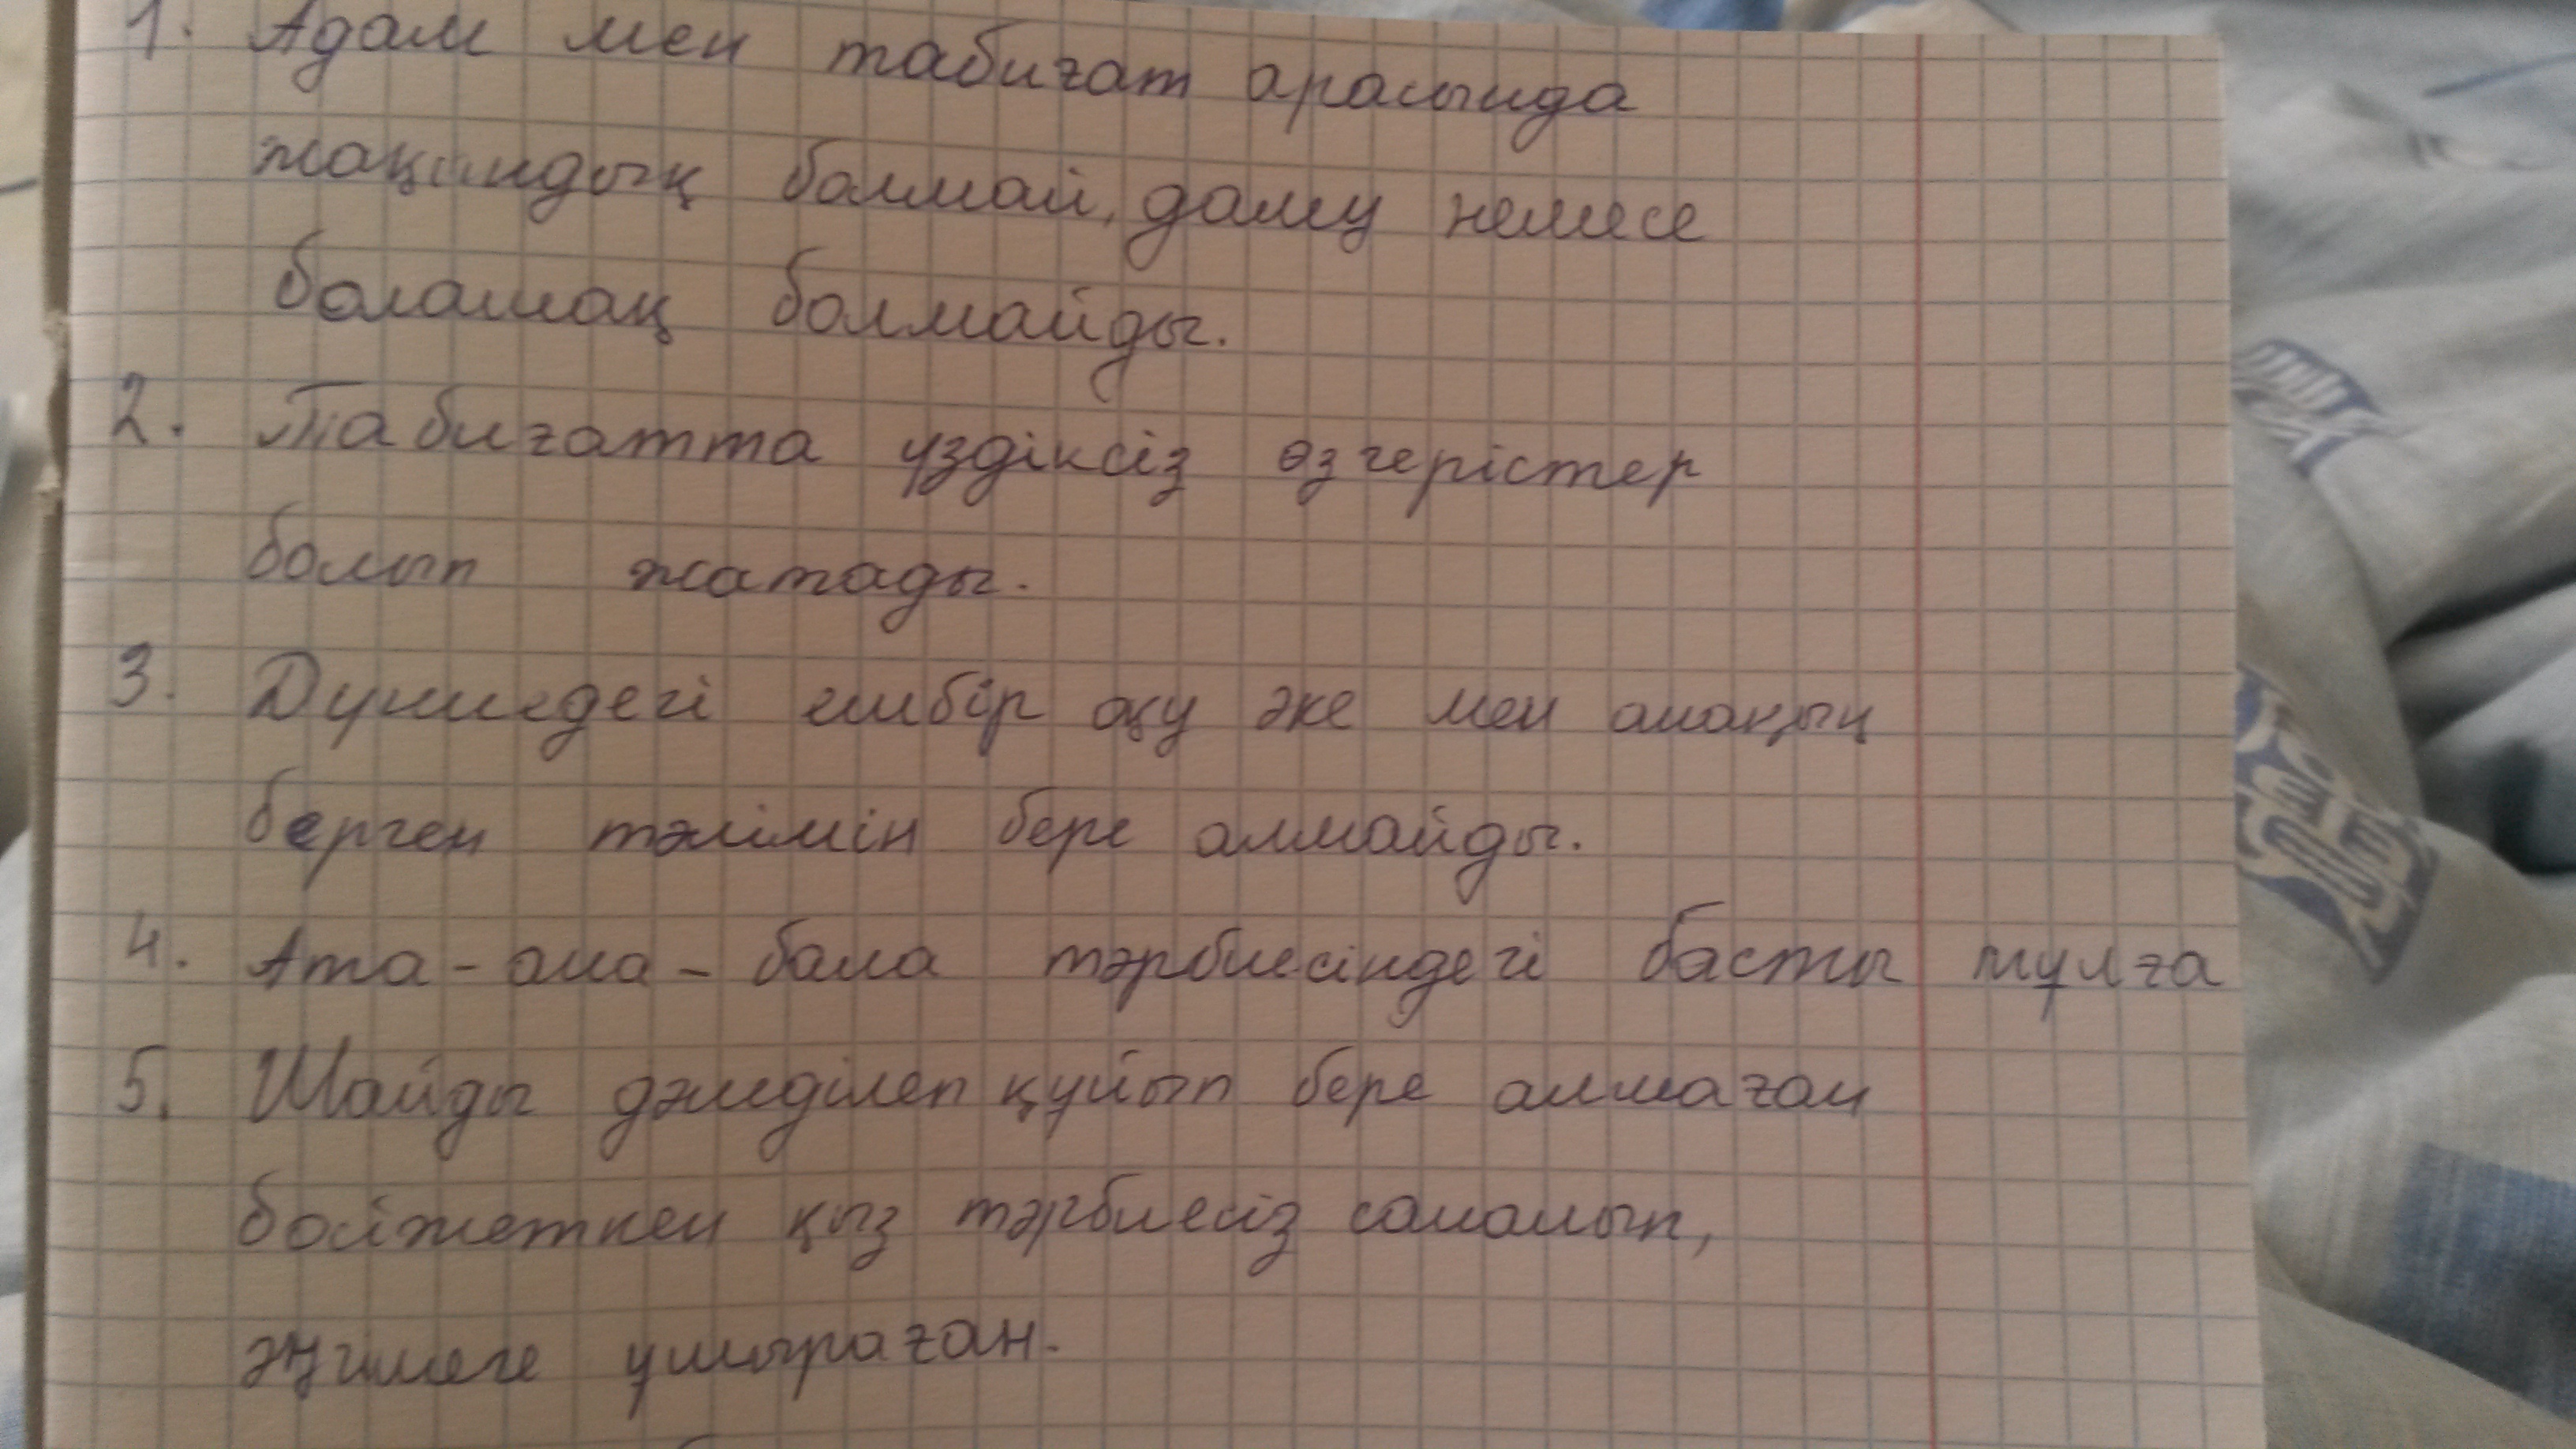 1. Адам мен табиғат арасында
жақындық болмай, даму немесе
болашақ болмайды.
2. Табиғатта үздіксіз өзгерістер
болып жатады.
3. Дүниедегі ешбір оқу әке мен анаңың
берген тәлімін бере алмайды.
4. Ата-ана - бала тәрбиесіндегі басты тұлға
5. Шайды дәмділеп құйып бере алмаған
бойжеткен қыз тәрбиесіз саналып,
әңгімеге ұшыраған.